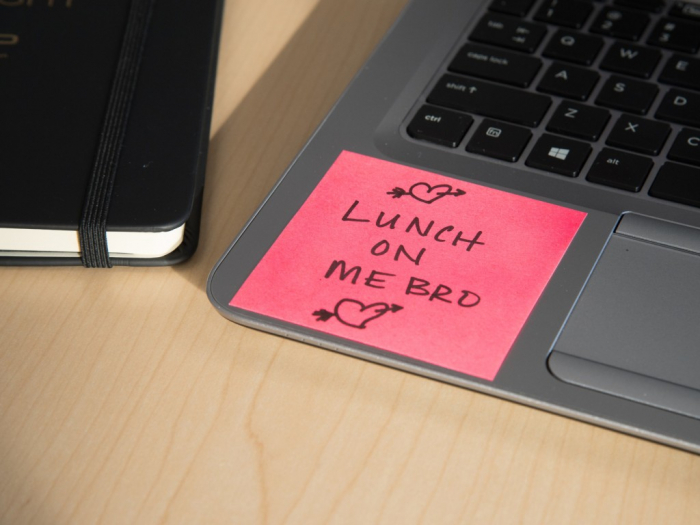 LUNCH
ON
ME BRO
Q
W
E
caps lock
A
S
D
shift
Z
X
C
ctrl
fn
alt